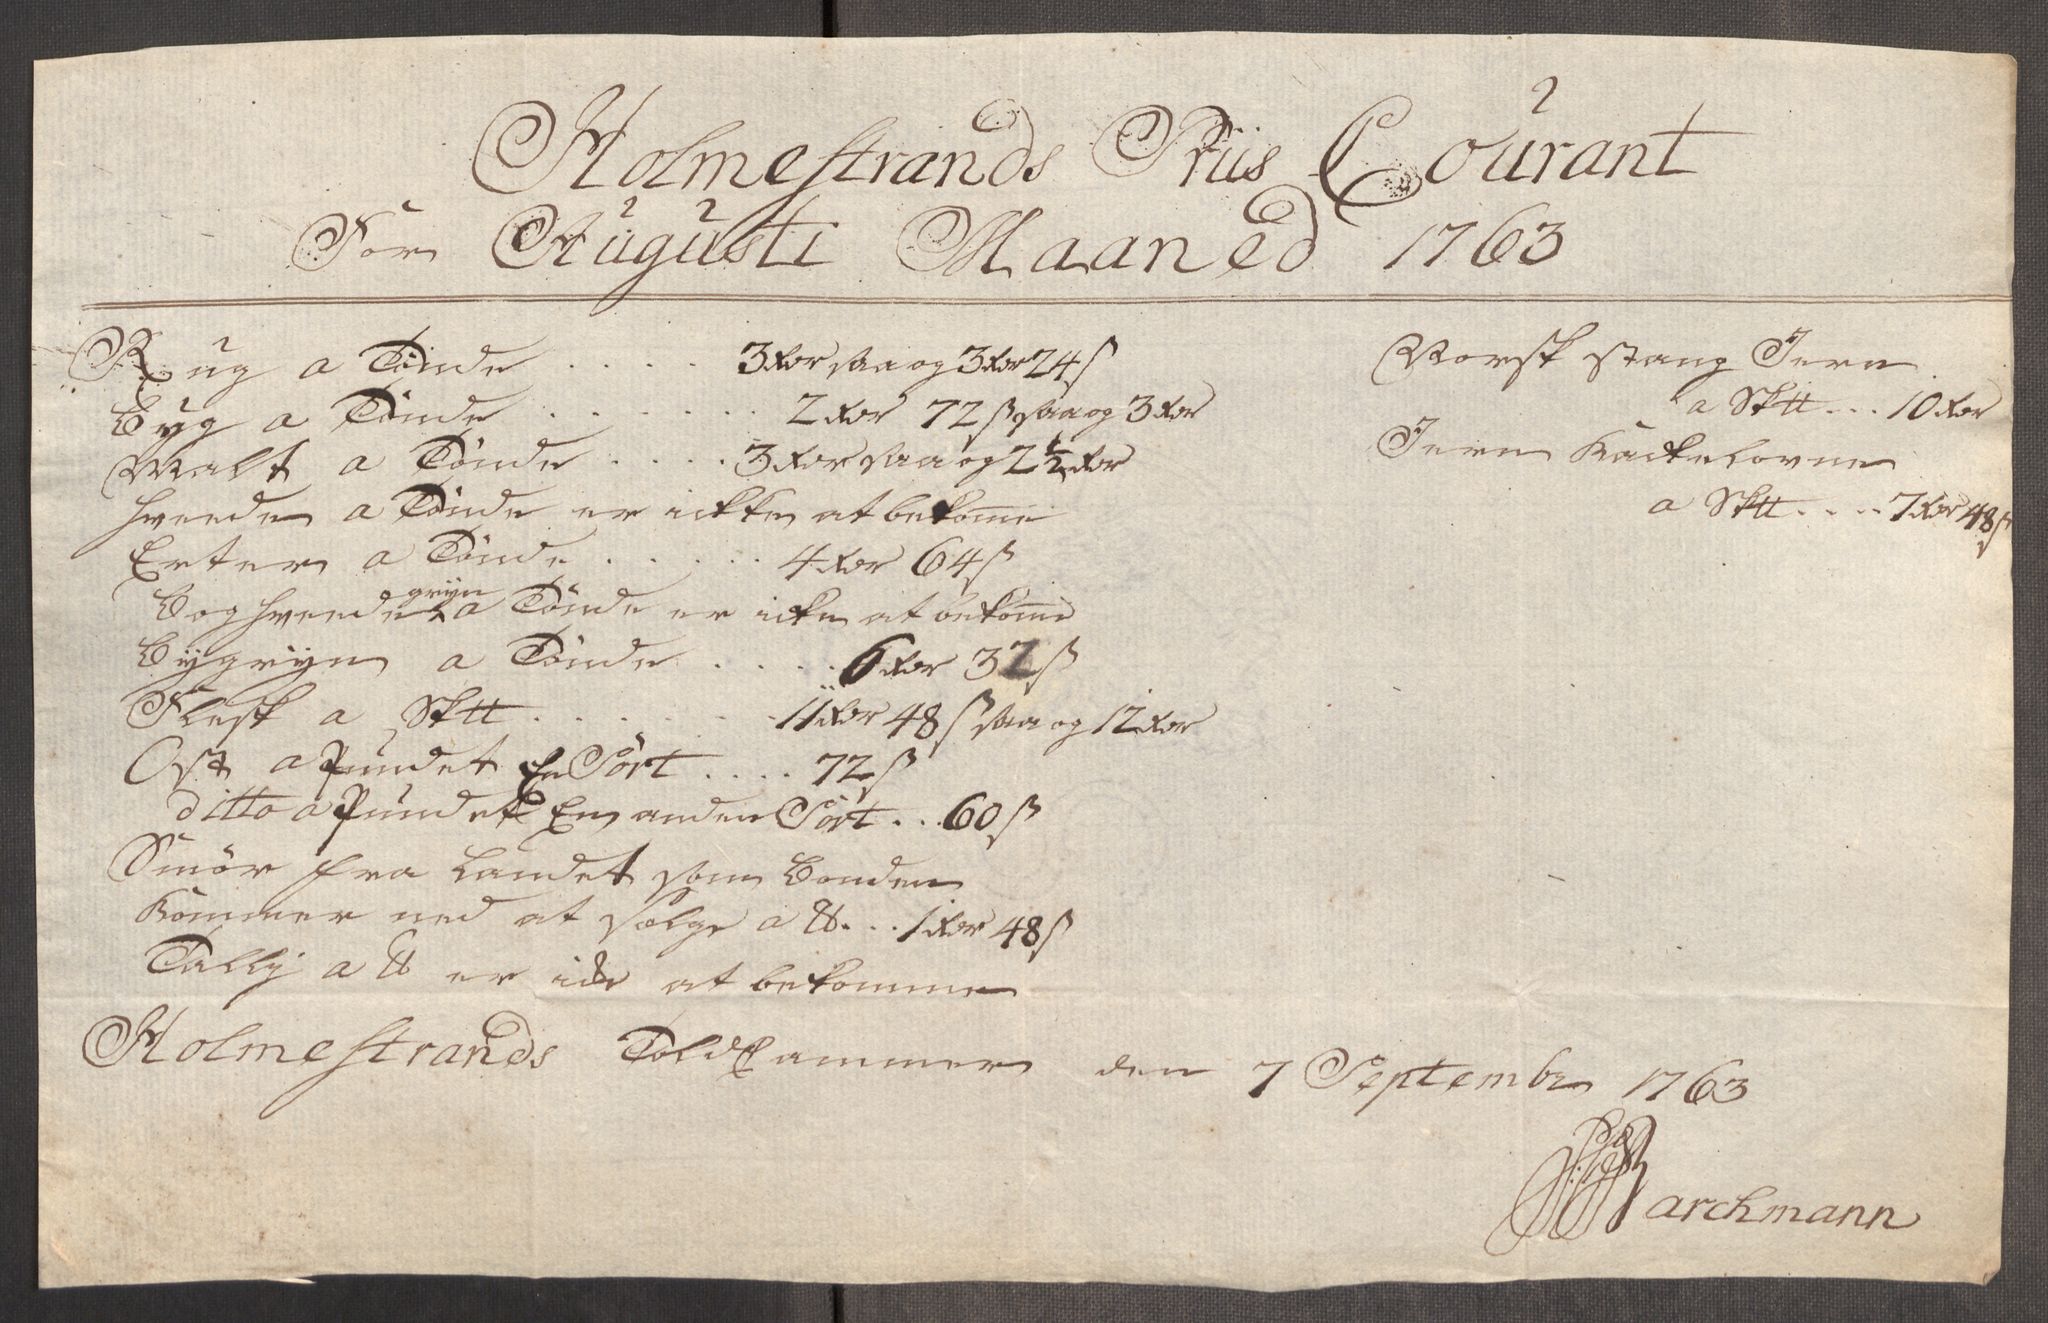 Holmestrands Priis Courant
For Augusti Maaned 1763
Rug a Tönde . . . . . 3 Rdr saa og 3 Rdr 24 ß
Byg a Tönde . . . . . . . 2 Rdr 72 ß saa og 3 Rdr
Malt a Tönde . . . . 3 Rdr saa og 2 1/2 Rdr
Hveede a Tönde er ickke at bekome
Erter a Tönde . . . . . 4 Rdr 64 ß
Boghveede gryn a Tönde er icke at bekome
Bygryn a Tönde . . . . . 6 Rdr 32 ß
Flesk a Sk℔ . . . . . . . 11 Rdr 48 ß saa og 12 Rdr
Ost a Pundet En Sort . . . . 72 ß
ditto a Pundet En anden Sort . . . 60 ß
Smör fra Landet som Bonden
Kommer ned at sælge a ℔ . . . 1 Rdr 48 ß
Tallig a ℔ er icke at bekomme
Norsk Stang Jern
a Sk℔ . . . 10 Rdr
Jern Kackelovne
a Sk℔ . . . . 7 Rdr 48 ß
Holmestrands Told Cammer den 7 Septembr 1763
Barchmann